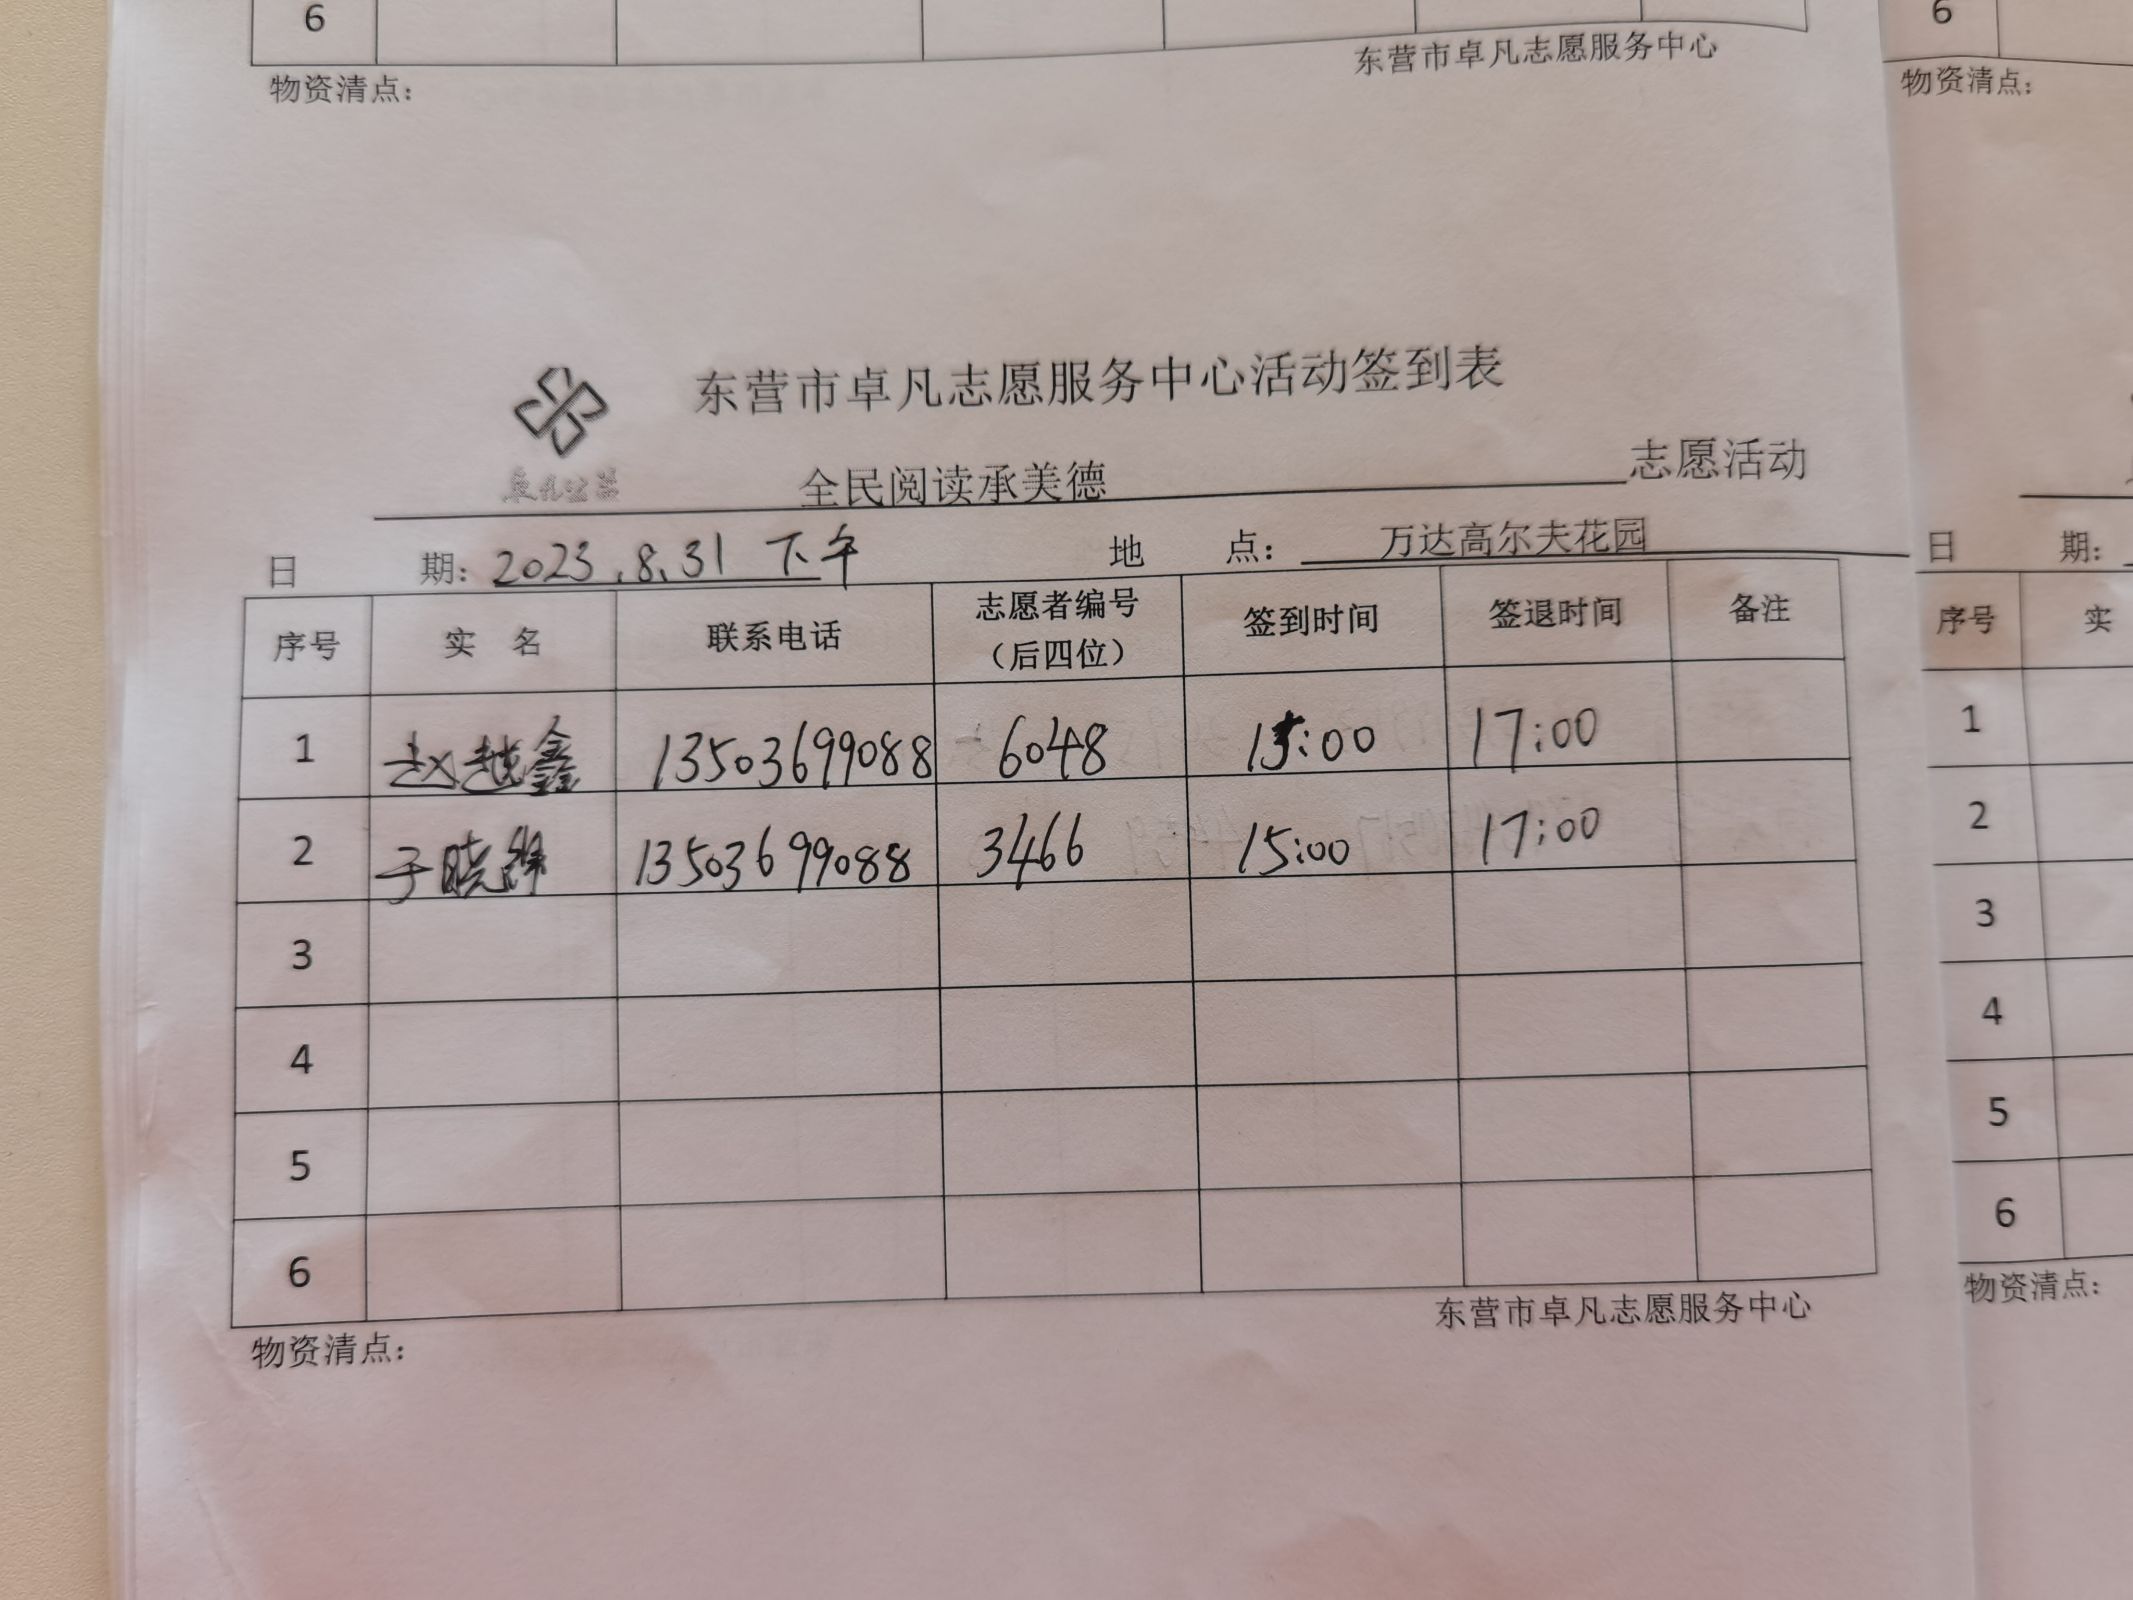 6
东营市卓凡志愿服务中心
物资清点：
6
物资清点：
东营市卓凡志愿服务中心活动签到表
卓凡公益
全民阅读承美德 志愿活动
日 期：2023.8.31 下午 地 点： 万达高尔夫花园
序号 实 名 联系电话 志愿者编号（后四位） 签到时间 签退时间 备注
1 赵越鑫 13503699088 6048 15:00 17:00
2 于晓 13503699088 3466 15:00 17:00
3
4
5
6
东营市卓凡志愿服务中心
物资清点：
日 期：
序号 实
1
2
3
4
5
6
物资清点：